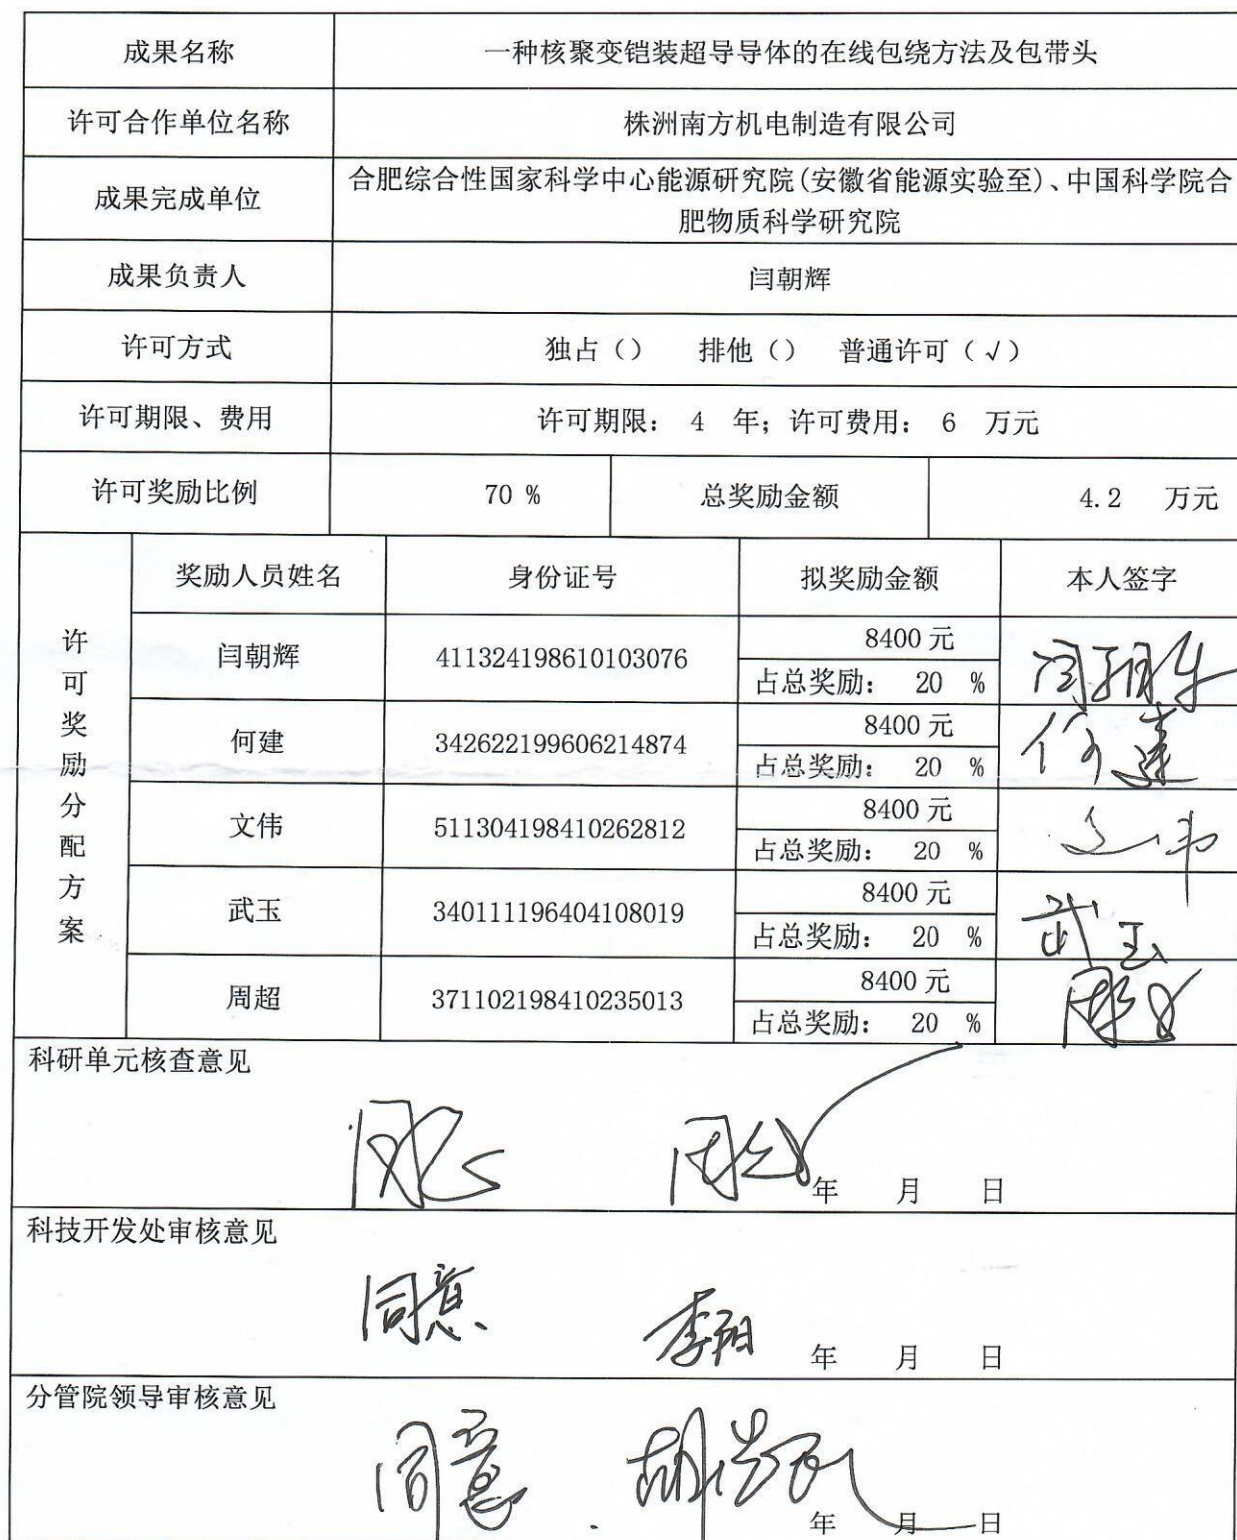 成果名称 一种核聚变铠装超导导体的在线包绕方法及包带头
许可合作单位名称 株洲南方机电制造有限公司
成果完成单位 合肥综合性国家科学中心能源研究院(安徽省能源实验至)、中国科学院合
肥物质科学研究院
成果负责人 闫朝辉
许可方式 独占（） 排他（） 普通许可（√）
许可期限、费用 许可期限： 4 年；许可费用： 6 万元
许可奖励比例 70 % 总奖励金额 4.2 万元
许可奖励分配方案
奖励人员姓名 身份证号 拟奖励金额 本人签字
闫朝辉 411324198610103076 8400 元 闫朝辉
占总奖励： 20 %
何建 342622199606214874 8400 元 何建
占总奖励： 20 %
文伟 511304198410262812 8400 元 文伟
占总奖励： 20 %
武玉 340111196404108019 8400 元 武玉
占总奖励： 20 %
周超 371102198410235013 8400 元 周超
占总奖励： 20 %
科研单元核查意见
同意
年 月 日
科技开发处审核意见
同意 李阳
年 月 日
分管院领导审核意见
同意
年 月 日